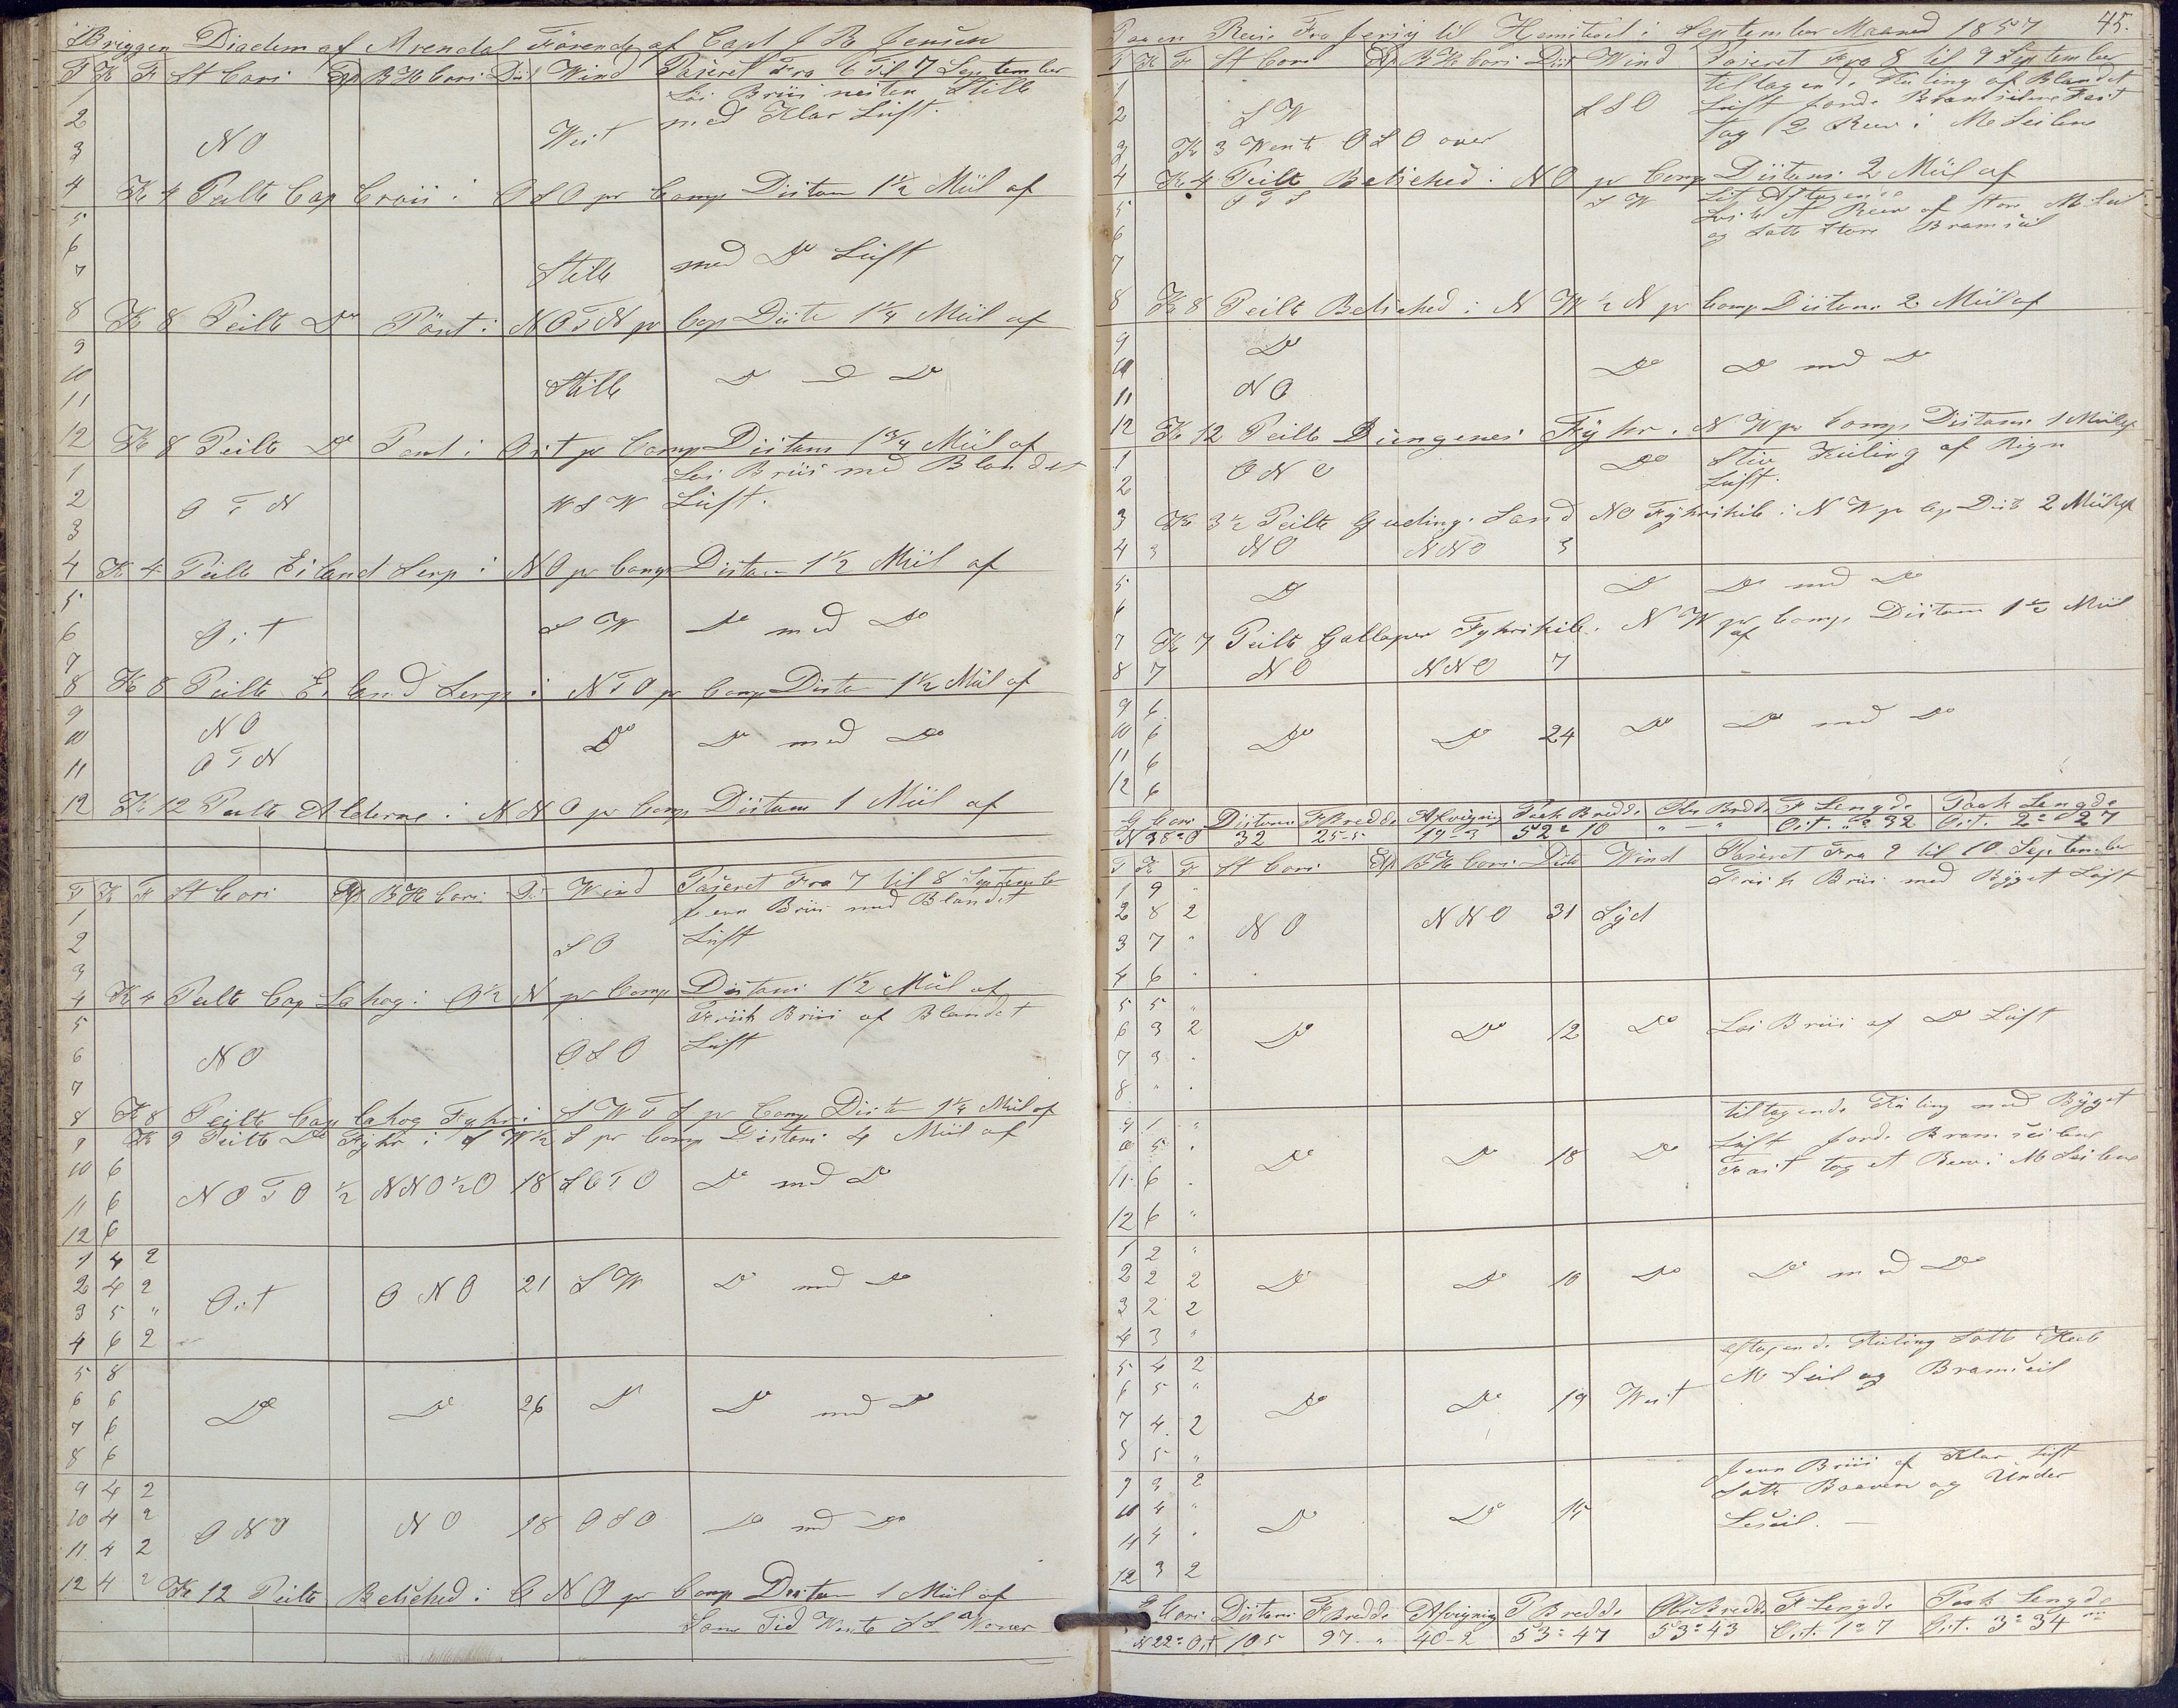 Briggen Diadem af Arendal Förende af Capt J B Jensen
T K F St Cors Afd B H Cors Dist Wind Paseret Fra 6 Til 7 September
1 Löi Briis nesten Stille
2 med Klar Luft.
3 NO West
4 Kl 4 Peilte Cap i OSO pr Comp Distan 1 1/2 Miil af
5
6
7 Stille med Do Luft
8 Kl 8 Peilte Do Pönt i NOTN pr Cop Diste 1 1/4 Miil af
9
10 Stille Do Do
11
12 Kl 8 Peilte Do Pont i Ost pr Comp Distans 1 3/4 Miil af
1 Löi Briis med Blandet
2 OTN WSW Luft.
3
4 Kl 4 Peilte Eiland i NO pr Comp Distan 1 1/2 Miil af
5
6 Ost SW Do med Do
7
8 Kl 8 Peilte Eiland i NTO pr Comp Distan 1 1/2 Miil af
9 NO
10 Do Do med Do
11 OTN
12 Kl 12 Peilte Alderne i NNO pr Comp Distans 1 Miil af
T K F St Cors Afd B H Cors Dis Wind Paseret Fra 7 til 8 September
1 Jevn Briis med Blandet
2 SO Luft
3
4 Kl 4 Peilte Cap Lahog i O 1/2 N pr Comp Distans 1 1/2 Miil af
5 Frisk Briis af Blandet
6 NO OSO Luft
7
8 Kl 8 Peilte Cap Lahog Fyhr i SWTS pr Comp Distan 1 1/4 Miil af
9 Kl 9 Peilte Do Fyhr i SW 1/2 S pr Comp Distans 4 Miil af
10 6
11 6 NOTO 1/2 NNO 1/2 O 18 SOTO Do med Do
12 6
1 4 2
2 4 2 Ost ONO 21 SW Do med Do
3 5 "
4 6 2
5 8
6 6 Do Do 26 Do Do med Do
7 6
8 6
9 4 2
10 4 2 ONO NO 18 OSO Do med Do
11 4 2
12 4 2 Kl 12 Peilte Betsched i ONO pr Comp Distan 1 Miil af
Same Tid Wente SSW over
Paa en Reise Fra til i September Maaned 1857 45.
T K F St Cors Afd B H Cors Dist Wind Paseret Fra 8 til 9 September
1 tiltagende Kuling af Blandet
2 SW SSO Luft Bramseilene Fast
tog 2 Reev i M Seilene
3 Kl 3 Wente OSO over
4 Kl 4 Peilte Betsched i NO pr Comp Distans 2 Miil af
5 STS SW Lit Aftagende
6 et Reev af Store M Seil
og Satte Store Bramseil
7
8 Kl 8 Peilte Betsched i NW 1/2 N pr Comp Distans 2 Miil af
9 Do
10 Do Do med Do
11 NO
12 Kl 12 Peilte Dungenes Fÿhr i NW pr Comp Distans 1 Miil af
1 Do Stiv Kuling af Regn
2 ONO Luft.
3 Kl 3 1/2 Peilte Gudings Sand NO Fÿhrskib i NW pr Cop Dist 2 Miil af
4 3 NO NNO 3
5 Do Do Do med Do
6
7 Kl 7 Peilte Gallaper Fyhrskib i NW pr Comp Distans 1 1/2 Miil af
8 7 NO NNO 7
9 6
10 6 Do Do 24 Do Do med Do
11 6
12 6
G Cors Distans F Bredde Afvigning Pask Bredde Obs Bredde F Lengde Pask Lengde
N 38° O 32 25-5 19-3 52° 10 " — " Ost. "° 32 Ost. 2° 27
T K F St Cors Afd B H Cors Diste Wind Paseret Fra 9 til 10 September
1 9 " Frisk Briis med Bÿget Luft
2 8 2 NO NNO 31 Sÿd
3 7 "
4 6 "
5 5 "
6 3 2 Do Do 12 Do Löi Briis af Do Luft
7 3 "
8 " "
9 1 " tiltagende Kuling med Bÿget
10 5 " Do Do 18 Do Luft Bramseilene
11 6 " Fast tog et Reev i M Seilene
12 6 "
1 2 "
2 2 2 Do Do 10 Do Do med Do
3 2 2
4 3 "
5 4 2 aftagende Kuling Satte Hele
6 5 " Do Do 19 West M Seil og Bramseil
7 4 2
8 5 "
9 3 2 Jevn Briis af Klar Luft
10 4 " Do Do 15 Satte Boaven og Under
11 4 " Leseil. —
12 3 2
G Cors Distans F Bredde Afvigning P Bredde Obs Bredde F Lengde Pask Lengde
N 22° Ost 105 97 " 40-2 53° 47 53° 43 Ost. 1° 7 Ost. 3° 34